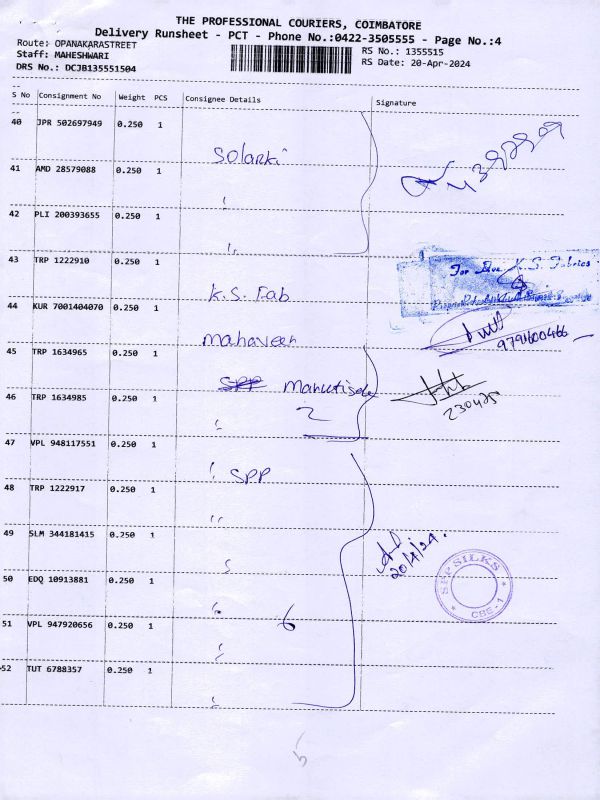 THE PROFESSIONAL COURIERS, COIMBATORE
Delivery Runsheet - PCT - Phone No.:0422-3505555 - Page No.:4
Route: OPANAKARASTREET
RS No.: 1355515
Staff: MAHESHWARI
RS Date: 20-Apr-2024
DRS No.: DCJB135551504
S No Consignment No Weight PCS Consignee Details Signature
40 JPR 502697949 0.250 1
Solanki
41 AMD 28579088 0.250 1
42 PLI 200393655 0.250 1
43 TRP 1222910 0.250 1
For Sree K.S. Fabrics
K.S. Fab
44 KUR 7001404070 0.250 1
Mahaveer
9791600466
45 TRP 1634965 0.250 1
SPP
46 TRP 1634985 0.250 1
2
47 VPL 948117551 0.250 1
SPP
48 TRP 1222917 0.250 1
49 SLM 344181415 0.250 1
20/4/24.
SPP SILKS
CBE - 1
50 EDQ 10913881 0.250 1
6
51 VPL 947920656 0.250 1
52 TUT 6788357 0.250 1